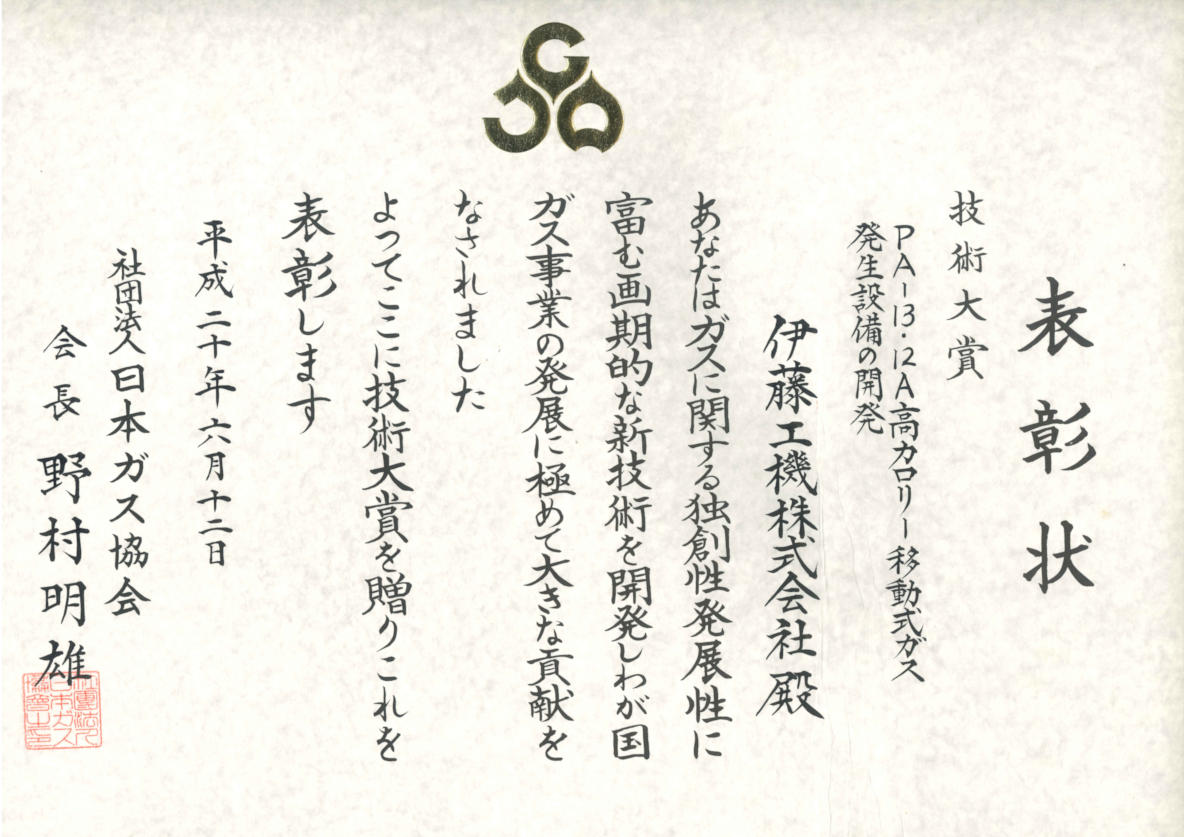 表彰状
技術大賞
PA-13・12A高カロリー移動式ガス
発生設備の開発
伊藤工機株式会社殿
あなたはガスに関する独創性発展性に
富む画期的な新技術を開発しわが国
ガス事業の発展に極めて大きな貢献を
なされました
よってここに技術大賞を贈りこれを
表彰します
平成二十年六月十二日
社団法人日本ガス協会
会長 野村明雄